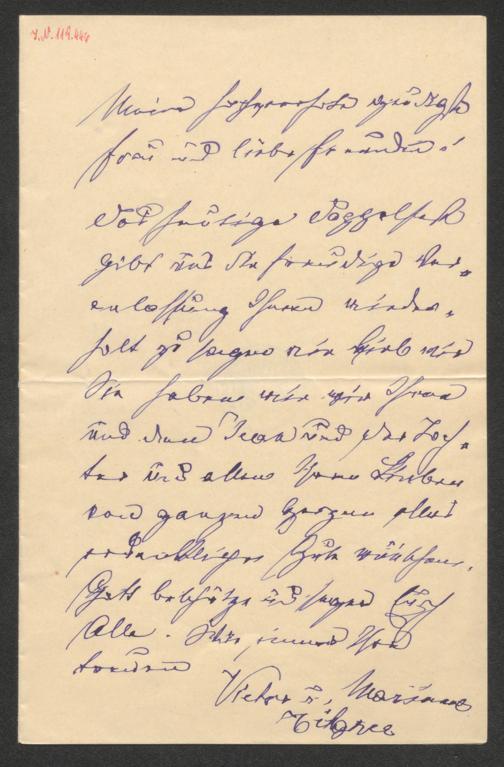 I.N. 119.446
Meine hochverehrte gnädigste
Frau und liebe Freundin!
Das heutige Doppelfest
gibt uns die freudige Ver-
anlassung Ihnen wieder-
holt zu sagen wie lieb wir
Sie haben wie wir Ihnen
und dem Jean und der Toch-
ter und allen Ihren Lieben
von ganzem Herzen alles
erdenkliche Gute wünschen.
Gott beschütze und segne Euch
Alle. Wie immer Ihre
treuen
Victor u. Marianne
Tilgner